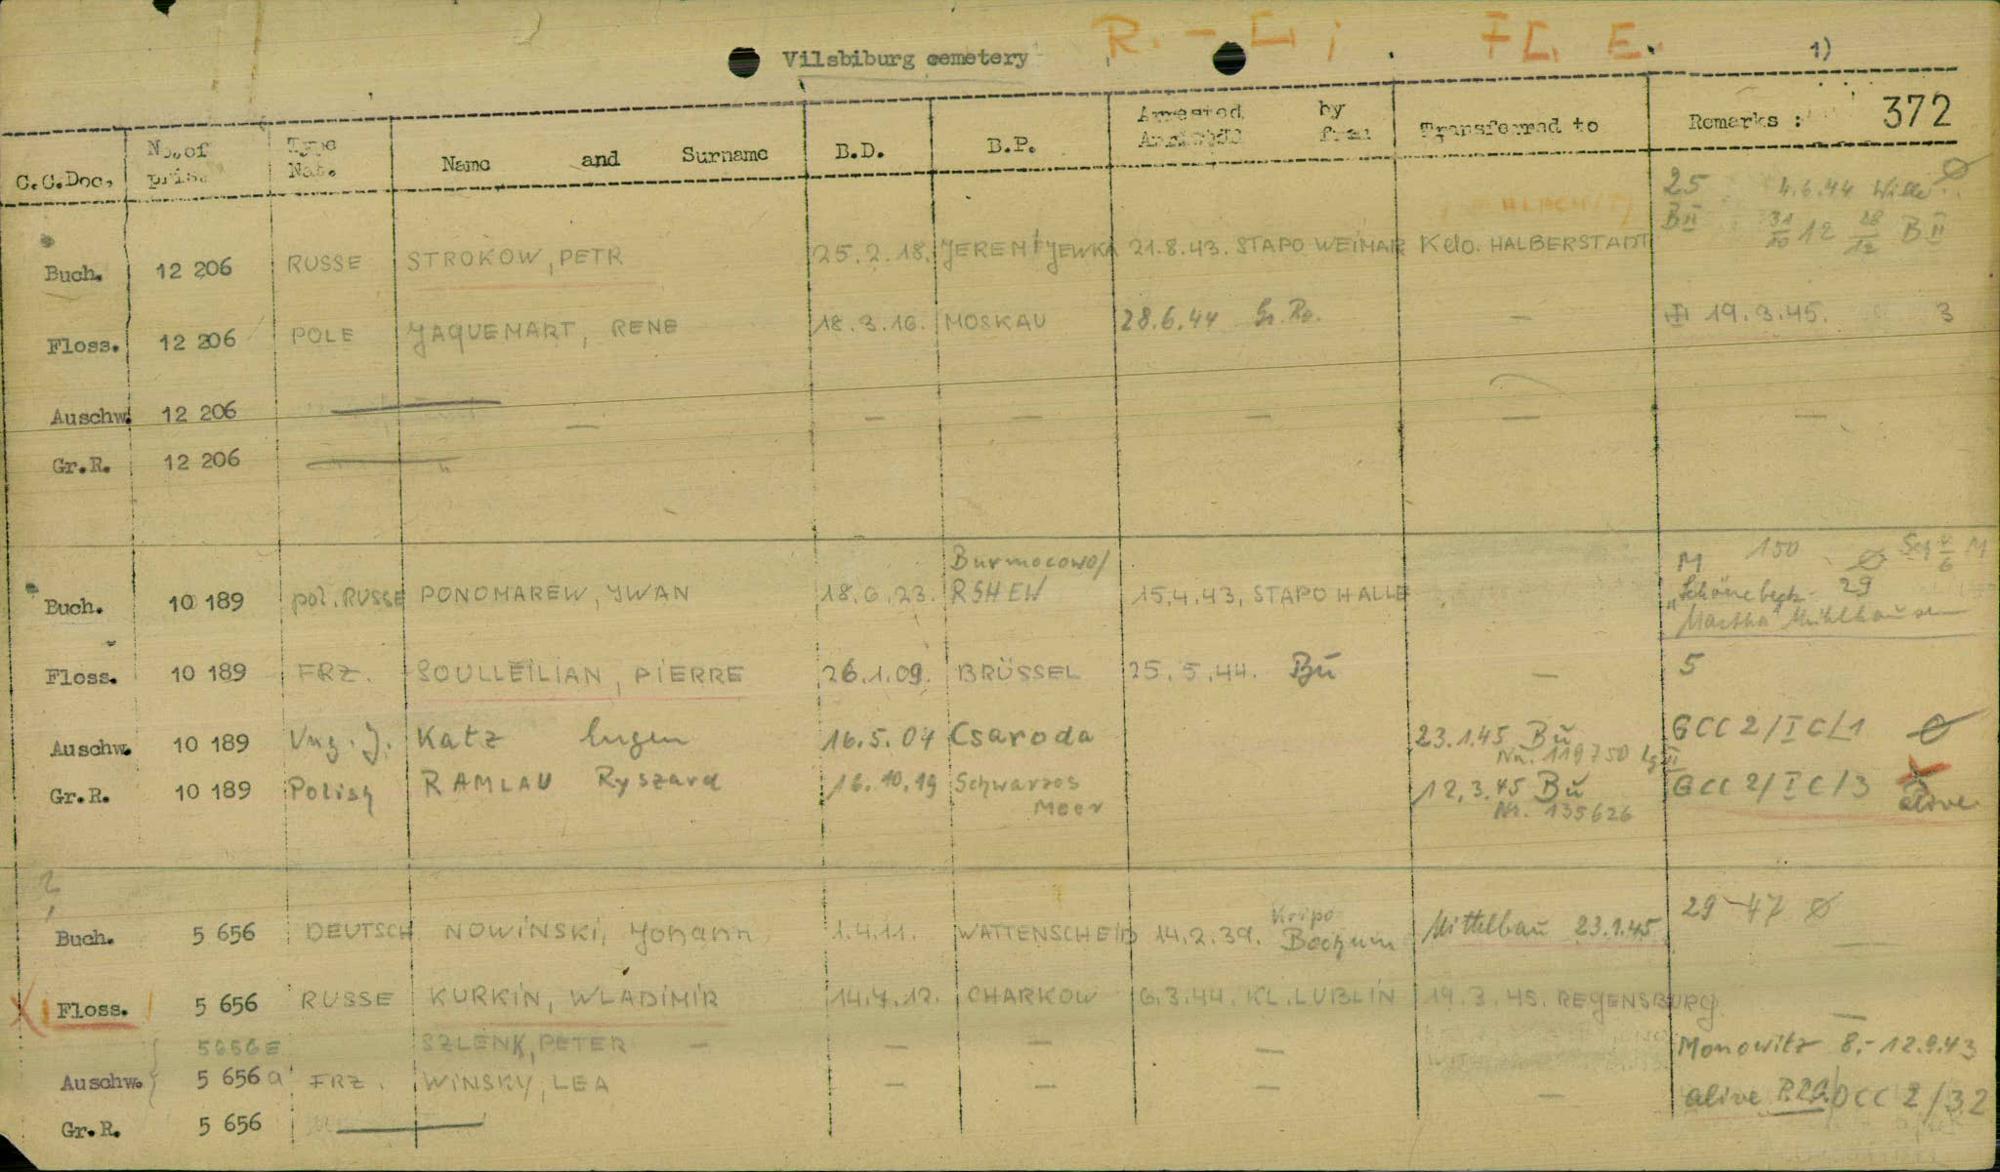 Vilsbiburg cemetery R. - FL. E. 1)
C.C.Doc. No. of pris. Type Nat. Name and Surname B.D. B.P. Arrested by Transferred to Remarks : 372
25 4.6.44 Wille Ø
BII 31/10 12 28/12 BII
Buch. 12 206 RUSSE STROKOW, PETR 25.2.18. JEREMIJEWKA 21.8.43. STAPO WEIMAR Kdo. HALBERSTADT
Floss. 12 206 POLE JAQUEMART, RENE 18.3.16. MOSKAU 28.6.44 Gr. Ro. — 19.3.45. 3
Auschw. 12 206 — — — — — —
Gr.R. 12 206
Burmocowo/ M 150 Ø M
Buch. 10 189 pol. RUSSE PONOMAREW, IWAN 18.6.23. RSHEW 15.4.43, STAPO HALLE "Schönebeck- 29
"Martha" Mühlhausen
Floss. 10 189 FRZ. SOULLEILIAN, PIERRE 26.1.09. BRÜSSEL 25.5.44. Bu — 5
Auschw. 10 189 Ung. J. Katz Eugen 16.5.04 Csaroda 23.1.45 Bu GCC 2/I C/1 Ø
Nr. 119750
Gr.R. 10 189 Polish RAMLAU Ryszard 16.10.19 Schwarzes Meer 12.3.45 Bu GCC 2/I C/3 alive
Nr. 135626
?
Buch. 5 656 DEUTSCH NOWINSKI, Johann 1.4.11. WATTENSCHEID 14.2.39. Kripo Bochum Mittelbau 23.1.45 29-47 Ø
X Floss. 5 656 RUSSE KURKIN, WLADIMIR 14.7.12. CHARKOW 6.3.44. KL. LUBLIN 19.3.45. REGENSBURG —
5656 SZLENK, PETER — — — — Monowitz 8.-12.9.43
Auschw. 5 656 a FRZ. WINSKY, LEA — — — — alive OCC 2/32
Gr.R. 5 656